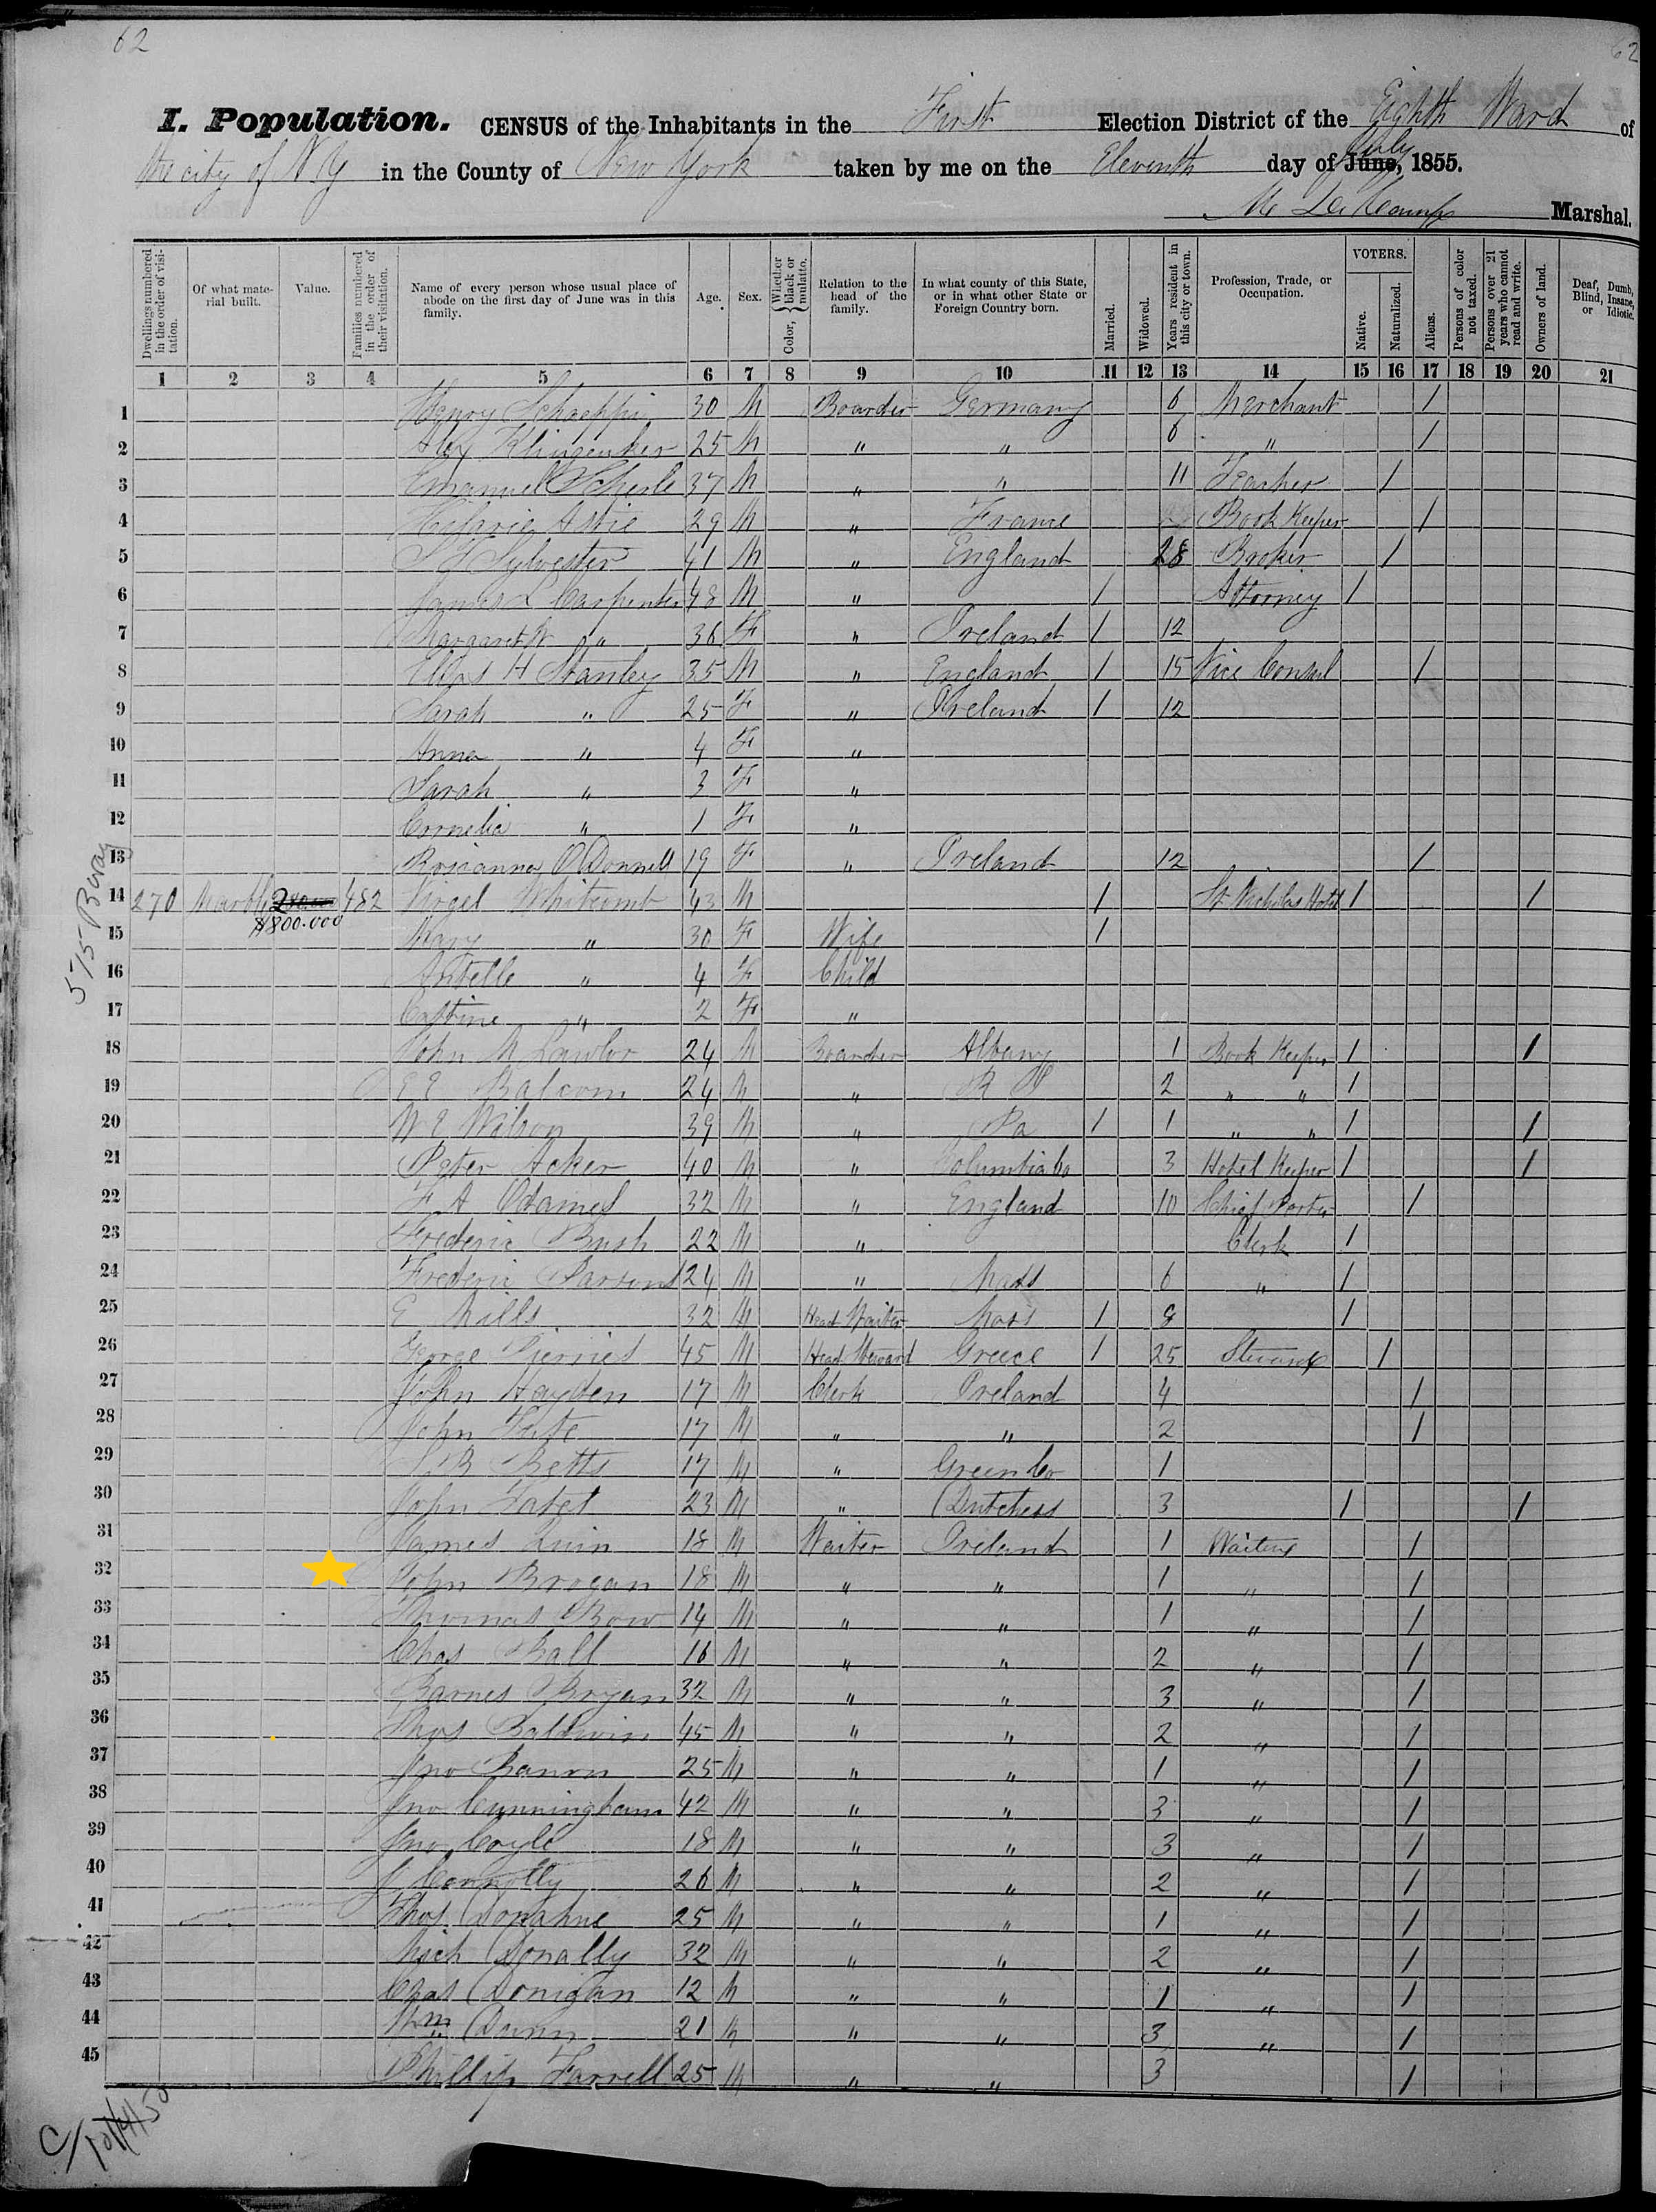 62
62
I. Population. CENSUS of the Inhabitants in the First Election District of the Eighth Ward of
the city of N.Y in the County of New York taken by me on the Eleventh day of June, July 1855.
Marshal.
Dwellings numbered in the order of visitation. Of what material built. Value. Families numbered in the order of their visitation. Name of every person whose usual place of abode on the first day of June was in this family. Age. Sex. Color, Whether black or mulatto. Relation to the head of the family. In what county of this State, or in what other State or Foreign Country born. Married. Widowed. Years resident in this city or town. Profession, Trade, or Occupation. VOTERS. Native. Naturalized. Aliens. Persons of color not taxed. Persons over 21 years who cannot read and write. Owners of land. Deaf, Dumb, Blind, Insane, or Idiotic.
1 2 3 4 5 6 7 8 9 10 11 12 13 14 15 16 17 18 19 20 21
1 Henry Schoeppi 30 M Boarder Germany 6 Merchant 1
2 Alex Klingenker 25 M " " 6 " 1
3 Emanuel Scherle 37 M " " 11 Teacher 1
4 29 M " France Book Keeper 1
5 Sylvester 41 M " England 28 Broker 1
6 James L Carpenter 48 M " 1 Attorney 1
7 Margaret W " 36 F " Ireland 1 12
8 Elias H Stanley 35 M " England 1 15 Vice Consul 1
9 Sarah " 25 F " Ireland 1 12
10 Anna " 4 F "
11 Sarah " 3 F "
12 Cornelia " 1 F "
13 Roseanna O'Donnell 19 F " Ireland 12 1
575 B.way
14 270 Marble 482 Virgel Whitcomb 43 M 1 St Nicholas Hotel 1 1
$800.000
15 Mary " 30 F Wife 1
16 Estelle " 4 F Child
17 " 2 F "
18 John M Lawlor 24 M Boarder Albany 1 Book Keeper 1 1
19 E E Balcom 24 M " R I 2 " " 1
20 W E Wilson 39 M " Pa 1 1 " " 1 1
21 Peter Acker 40 M " Columbia Co 3 Hotel Keeper 1 1
22 F A Adames 32 M " England 10 Chief Porter 1
23 Frederic Bush 22 M " Clerk 1
24 Frederic Parsons 24 M " Mass 6 " 1
25 E Mills 32 M Head Waiter Mass 1 8 1
26 George Pierries 45 M Head Steward Greece 1 25 Steward 1
27 John Hayden 17 M Clerk Ireland 4 1
28 John 17 M " " 2 1
29 S B Betts 17 M " Green Co 1
30 John 23 M " Dutchess 3 1 1
31 James Quin 18 M Waiter Ireland 1 Waiting 1
32 John Brogan 18 M " " 1 " 1
33 Thomas Bow 14 M " " 1 " 1
34 Chas Ball 16 M " " 2 " 1
35 Barnes Bryan 32 M " " 3 " 1
36 Thos Baldwin 45 M " " 2 " 1
37 Jno Banon 25 M " " 1 " 1
38 Jno Cunningham 42 M " " 3 " 1
39 Jno Coyle 18 M " " 3 " 1
40 J Connolly 26 M " " 2 " 1
41 Thos Donahue 25 M " " 1 " 1
42 Mich Donally 32 M " " 2 " 1
43 Chas Donigan 12 M " " 1 " 1
44 Wm Dunn 21 M " " 3 " 1
45 Phillip Farrell 25 M " " 3 1